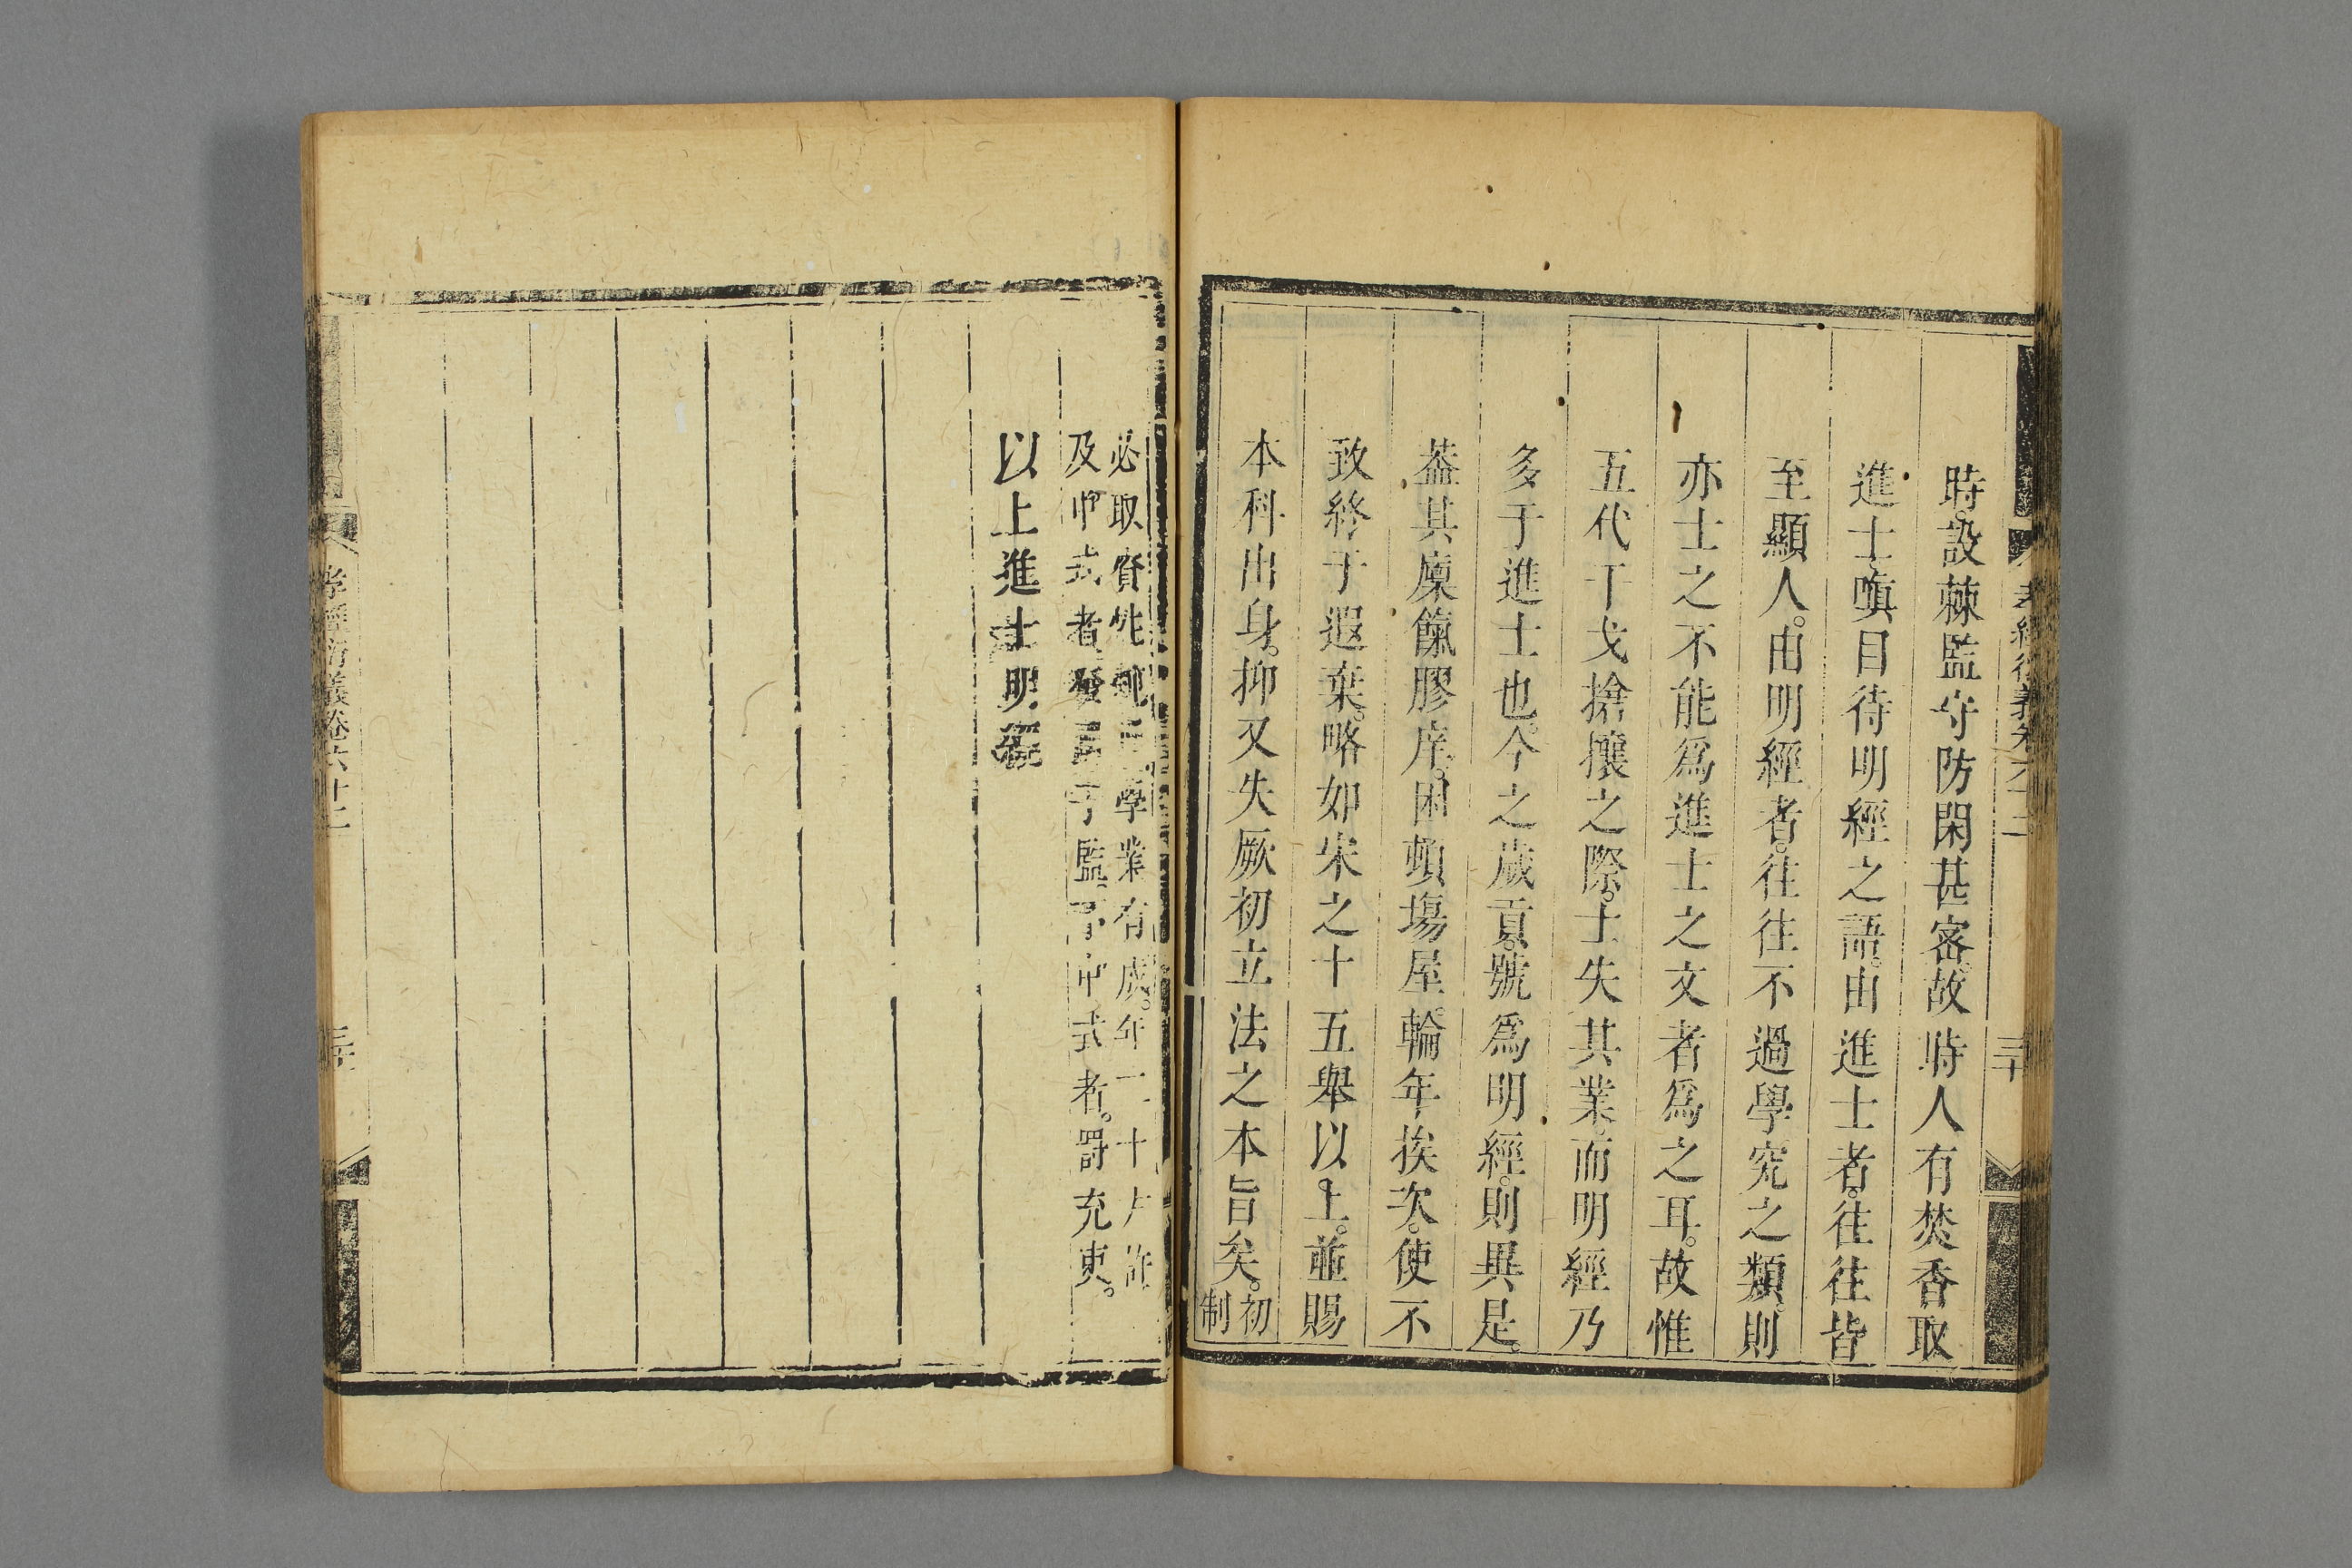 時。設棘監守防閑甚密。故時人有焚香取
進士。嗔目待明經之語。由進士者。往往皆
至顯人。由明經者。往往不過學究之類。則
亦士之不能爲進士之文者爲之耳。故惟
五代干戈搶攘之際。士失其業。而明經乃
多于進士也。今之歲貢。號爲明經。則異是。
葢其廩餼膠庠。困頓塲屋。輪年挨次。使不
致終于遐棄。略如宋之十五舉以上。並賜
本科出身。抑又失厥初立法之本旨矣。初
制
必取資性 學業有成。年二十 許
及中式者 監 中式者。罰充吏。
以上進士明經
孝經衍義卷六十二
三十